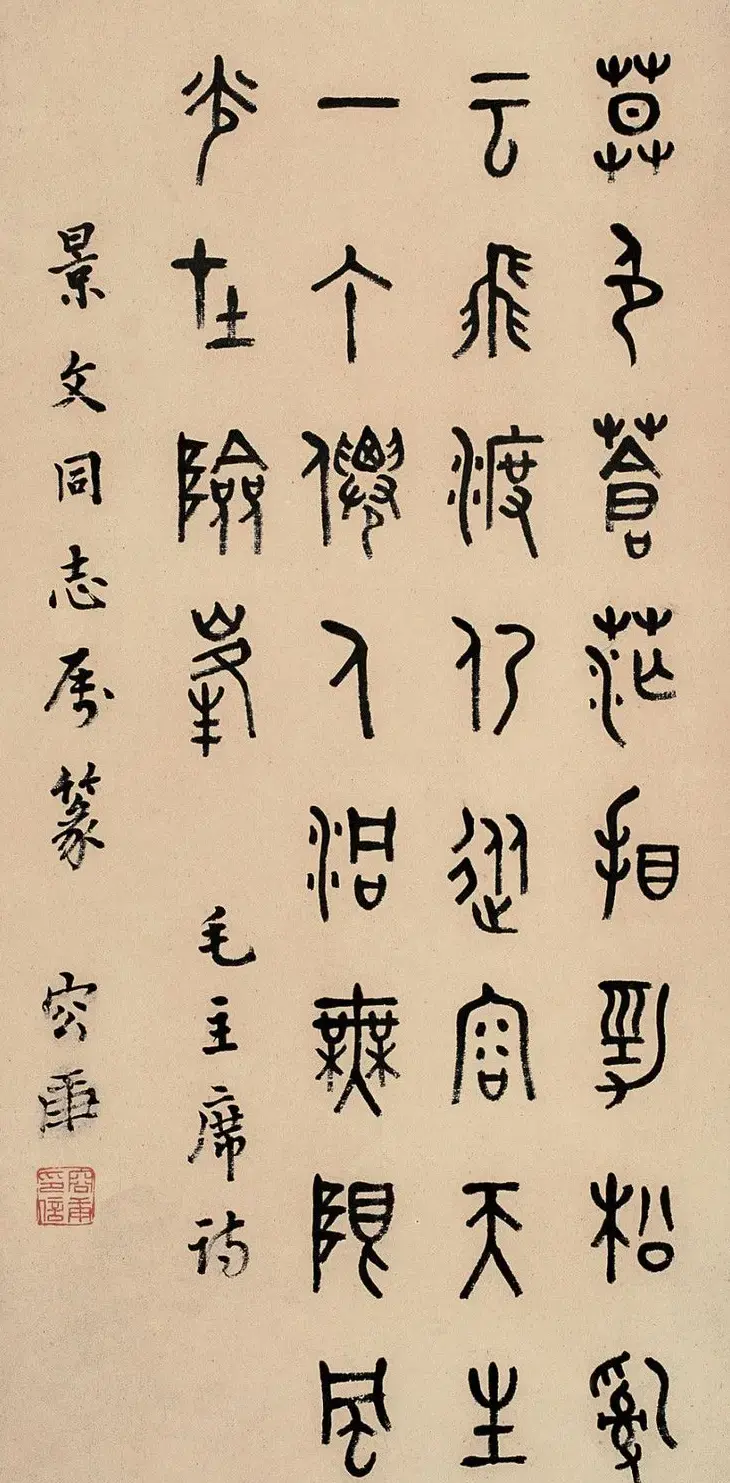 莫色蒼茫看勁松亂
云飛渡仍從容天生
一个僊人洞無限風
光在險峯 毛主席詩
景文同志属篆 容庚
容庚印信